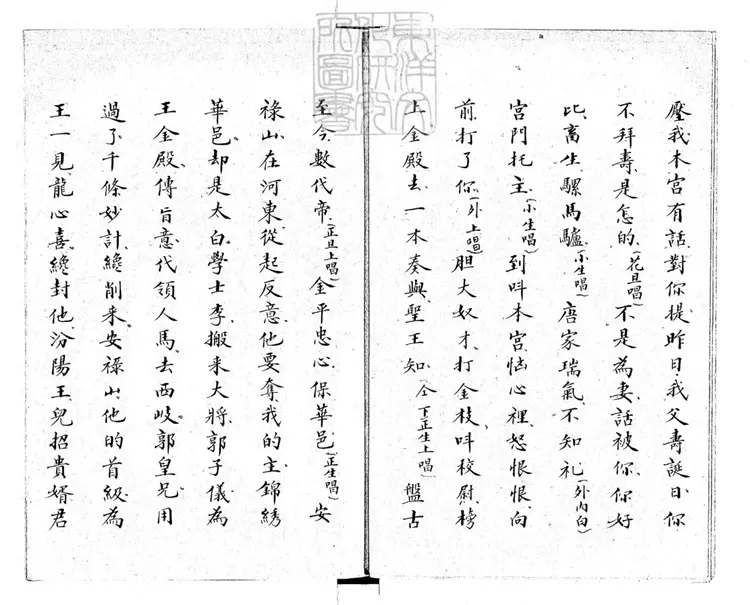 壓我本宮有話對你提昨日我父壽誕日你
不拜壽是怎的(花旦唱)不是為妻話被你你好
比畜生騾馬驢(小生唱)唐家瑞氣不知礼(外內白)
宮門托主(小生唱)到叫本宮恼心裡怒恨恨向
前打了你(外上唱)胆大奴才打金枝叫校尉榜
上金殿去一本奏與聖王知(仝下正生上唱)盤古
至今數代帝(正旦上唱)金平忠心保華邑(正生唱)安
祿山在河東從起反意他要奪我的主錦綉
華邑却是太白學士李搬来大將郭子儀為
王金殿傳旨意代領人馬去西岐郭皇兄用
過了千條妙計纔削来安祿山他的首級為
王一見龍心喜纔封他汾陽王兒招貴婿君